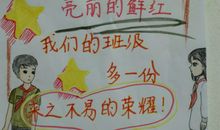 亮丽的鲜红
我们的班级
多一份
来之不易的荣耀！